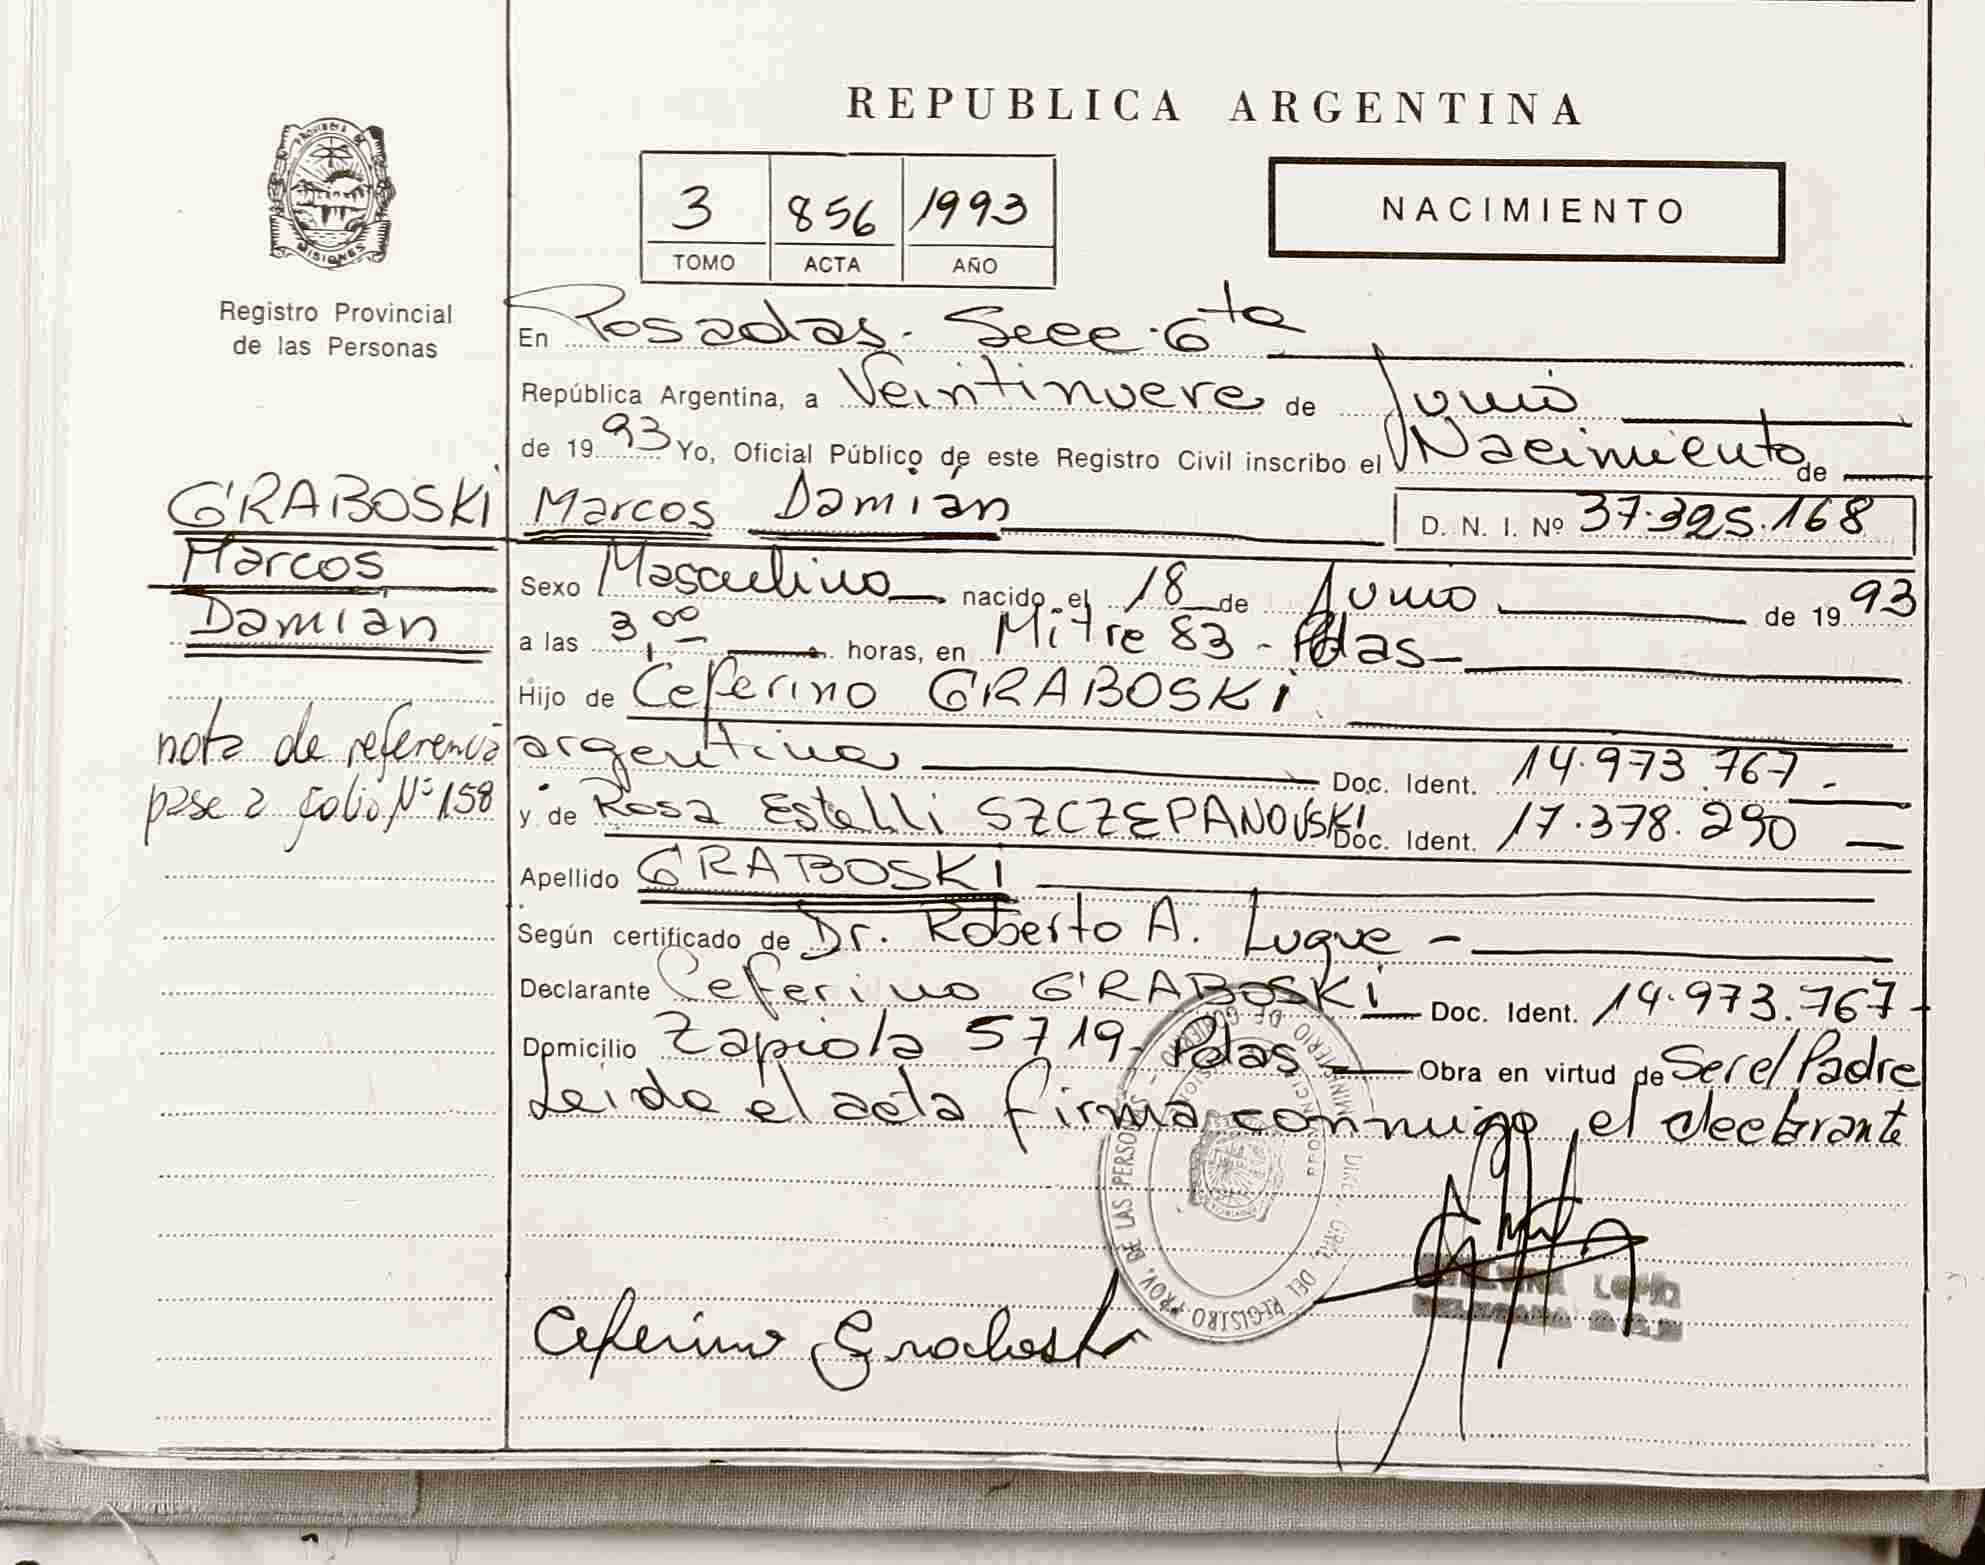 REPUBLICA ARGENTINA
PROVINCIA DE
MISIONES
Registro Provincial
de las Personas
3 856 1993
TOMO ACTA AÑO
NACIMIENTO
En Posadas - Secc. 6ta
República Argentina, a Veintinueve de Junio
de 1993 Yo, Oficial Público de este Registro Civil inscribo el Nacimiento de
GRABOSKI
Marcos
Damián
Marcos Damián D. N. I. Nº 37.325.168
Sexo Masculino nacido el 18 de Junio de 1993
a las 3,00 horas, en Mitre 83 - Pdas -
Hijo de Ceferino GRABOSKI
argentino Doc. Ident. 14.973.767 -
y de Rosa Estelli SZCZEPANOUSKI Doc. Ident. 17.378.290 -
nota de referencia
pase a folio Nº 158
Apellido GRABOSKI
Según certificado de Dr. Roberto A. Luque -
Declarante Ceferino GRABOSKI Doc. Ident. 14.973.767 -
Domicilio Zapiola 5719 - Pdas Obra en virtud de Ser el Padre
Leida el acta firma conmigo el declarante
MINISTERIO DE GOBIERNO
DEL REGISTRO PROV. DE LAS PERSONAS
Ceferino Graboski